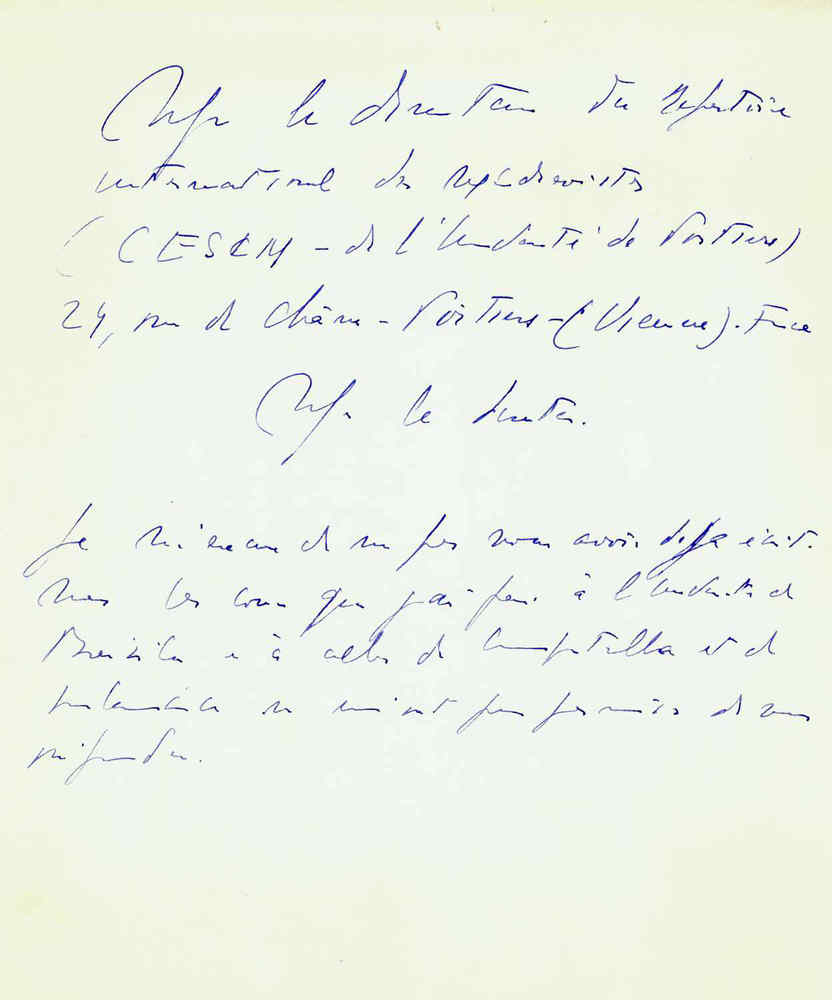 Mr le directeur du Répertoire
international des médiévistes
(CESCM - de l'Université de Poitiers)
24, rue de Chaîne - Poitiers - (Vienne). France
Mr le
Je m'excuse de ne pas vous avoir déjà écrit.
Mais les cours que j'ai à l'Université de
et à celles de Compostella et de
Salamanca ne m'ont pas permis de vous
répondre.